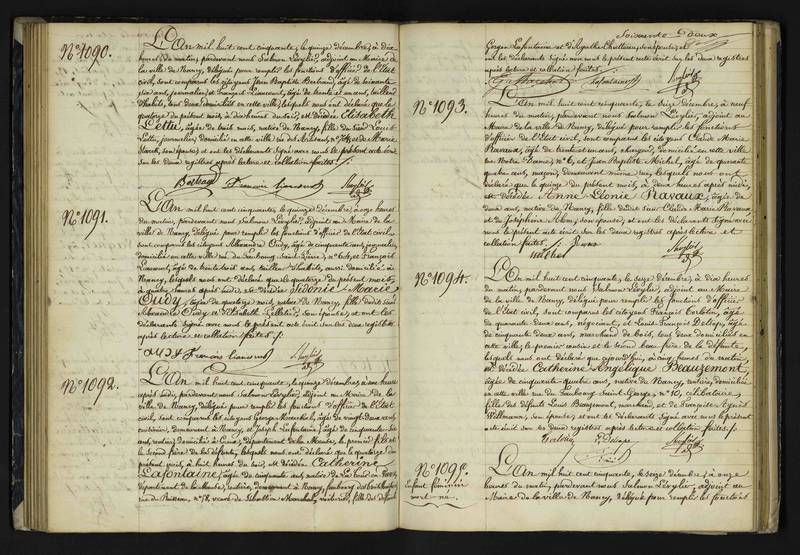 N° 1090.
L'An mil huit cent cinquante, le quinze décembre, à dix
heures du matin, pardevant nous Salmon Lévylier, adjoint au Maire de
la ville de Nancy, délégué pour remplir les fonctions d'officier de l'Etat
civil, sont comparus les citoyens Jean Baptiste Bertrand, âgé de soixante
ans, journalier, et François Limaux, âgé de trente et un ans, tailleur
d'habits, tous deux domiciliés en cette ville; lesquels nous ont déclaré que le
quatorze du présent mois, à dix heures du soir, est décédée Elisabeth
Lettu, âgée de huit mois, native de Nancy, fille de Louis
Lettu, journalier, domicilié en cette ville rue des Artisans, et de Marie
son épouse; et ont les déclarants signé avec nous le présent acte écrit
sur les deux registres après lecture et collation faites./.
N° 1091.
L'An mil huit cent cinquante, le quinze décembre, à onze heures
du matin, pardevant nous Salmon Lévylier, adjoint au Maire de la
ville de Nancy, délégué pour remplir les fonctions d'officier de l'Etat civil,
sont comparus les citoyens Alexandre Oudy, âgé de cinquante ans, journalier,
domicilié en cette ville rue du faubourg Saint Pierre, et François
âgé de trente ans, tailleur d'habits, aussi domicilié à
Nancy, lesquels nous ont déclaré que le quatorze du présent mois,
à quatre heures après midi, est décédée Sidonie-Marie
Oudy, âgée de quatorze mois, native de Nancy, fille dudit sieur
Alexandre Oudy et d'Elisabeth son épouse; et ont les
déclarants signé avec nous le présent acte écrit sur les deux registres
après lecture et collation faites./.
N° 1092.
L'An mil huit cent cinquante, le quinze décembre, à une heure
après midi, pardevant nous Salmon Lévylier, adjoint au Maire de la
ville de Nancy, délégué pour remplir les fonctions d'officier de l'Etat
civil, sont comparus les citoyens Georges Marechal, âgé de vingt deux ans,
demeurant à Nancy, et Joseph Lafontaine, âgé de cinquante
ans, département de la Meuse, le premier fils et
le second frère de la défunte, lesquels nous ont déclaré que le quatorze du
présent mois, à huit heures du soir, est décédée Catherine
Lafontaine, âgée de cinquante ans, native de
département de la Meuse, rentière, demeurant à Nancy, faubourg des
rue du Ruisseau, n° 18, veuve de Sébastien Marechal, fille des défunts
Soixante Deux
Lafontaine et d'Agathe son épouse; et
ont les déclarants signé avec nous le présent acte écrit sur les deux registres
après lecture et collation faites./.
N° 1093.
L'An mil huit cent cinquante, le seize décembre, à neuf
heures du matin, pardevant nous Salmon Lévylier, adjoint au
Maire de la ville de Nancy, délégué pour remplir les fonctions
d'officier de l'Etat civil, sont comparus les citoyens Claude Marie
Ravaux, âgé de trente et un ans, domicilié en cette ville
rue Notre Dame, n° 6, et Jean Baptiste Michel, âgé de quarante
quatre ans, maçon, demeurant même rue, lesquels nous ont
déclaré que le quinze du présent mois, à deux heures après midi,
est décédée Anne Léonie Ravaux, âgée de
deux ans, native de Nancy, fille dudit sieur Claude Marie Ravaux,
et de Joséphine son épouse; et ont les déclarants signé avec
nous le présent acte écrit sur les deux registres après lecture et
collation faites./.
N° 1094.
L'An mil huit cent cinquante, le seize décembre, à dix heures
du matin, pardevant nous Salmon Lévylier, adjoint au Maire
de la ville de Nancy, délégué pour remplir les fonctions d'officier
de l'Etat civil, sont comparus les citoyens François âgé
de quarante deux ans, négociant, et Louis François âgé
de cinquante deux ans, marchand de bois, tous deux domiciliés en
cette ville, le premier cousin et le second beau frère de la défunte,
lesquels nous ont déclaré que aujourd'hui, à cinq heures du matin,
est décédée Catherine Angélique Beauzemont,
âgée de cinquante quatre ans, native de Nancy, rentière, domiciliée
en cette ville rue du faubourg Saint Georges, n° 10, célibataire,
fille des défunts Louis Beauzemont, marchand, et de Françoise
son épouse; et ont les déclarants signé avec nous le présent
acte écrit sur les deux registres après lecture et collation faites./.
N° 1095.
Enfant féminin
mort né.
L'An mil huit cent cinquante, le seize décembre, à onze
heures du matin, pardevant nous Salmon Lévylier, adjoint au
Maire de la ville de Nancy, délégué pour remplir les fonctions